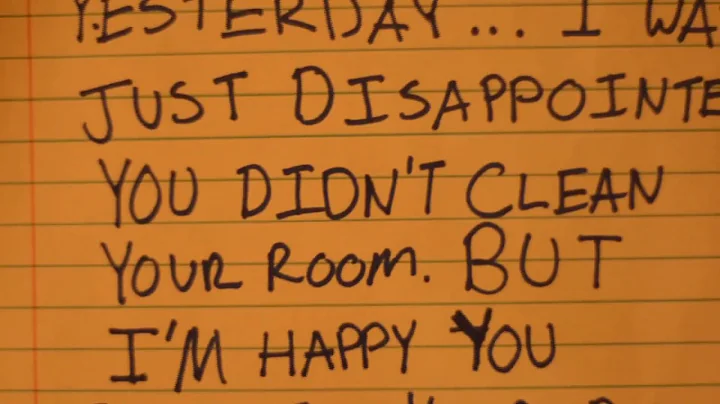 YESTERDAY... I WA
JUST DISAPPOINTE
YOU DIDN'T CLEAN
YOUR ROOM. BUT
I'M HAPPY YOU